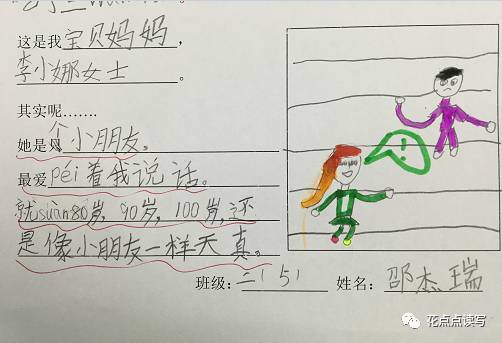 这是我宝贝妈妈,
李小娜女士。
其实呢.......
她是个小朋友。
最爱péi着我说话。
就suàn80岁,90岁,100岁,还
是像小朋友一样天真。
班级:二(5) 姓名:邵杰瑞
花点点读写